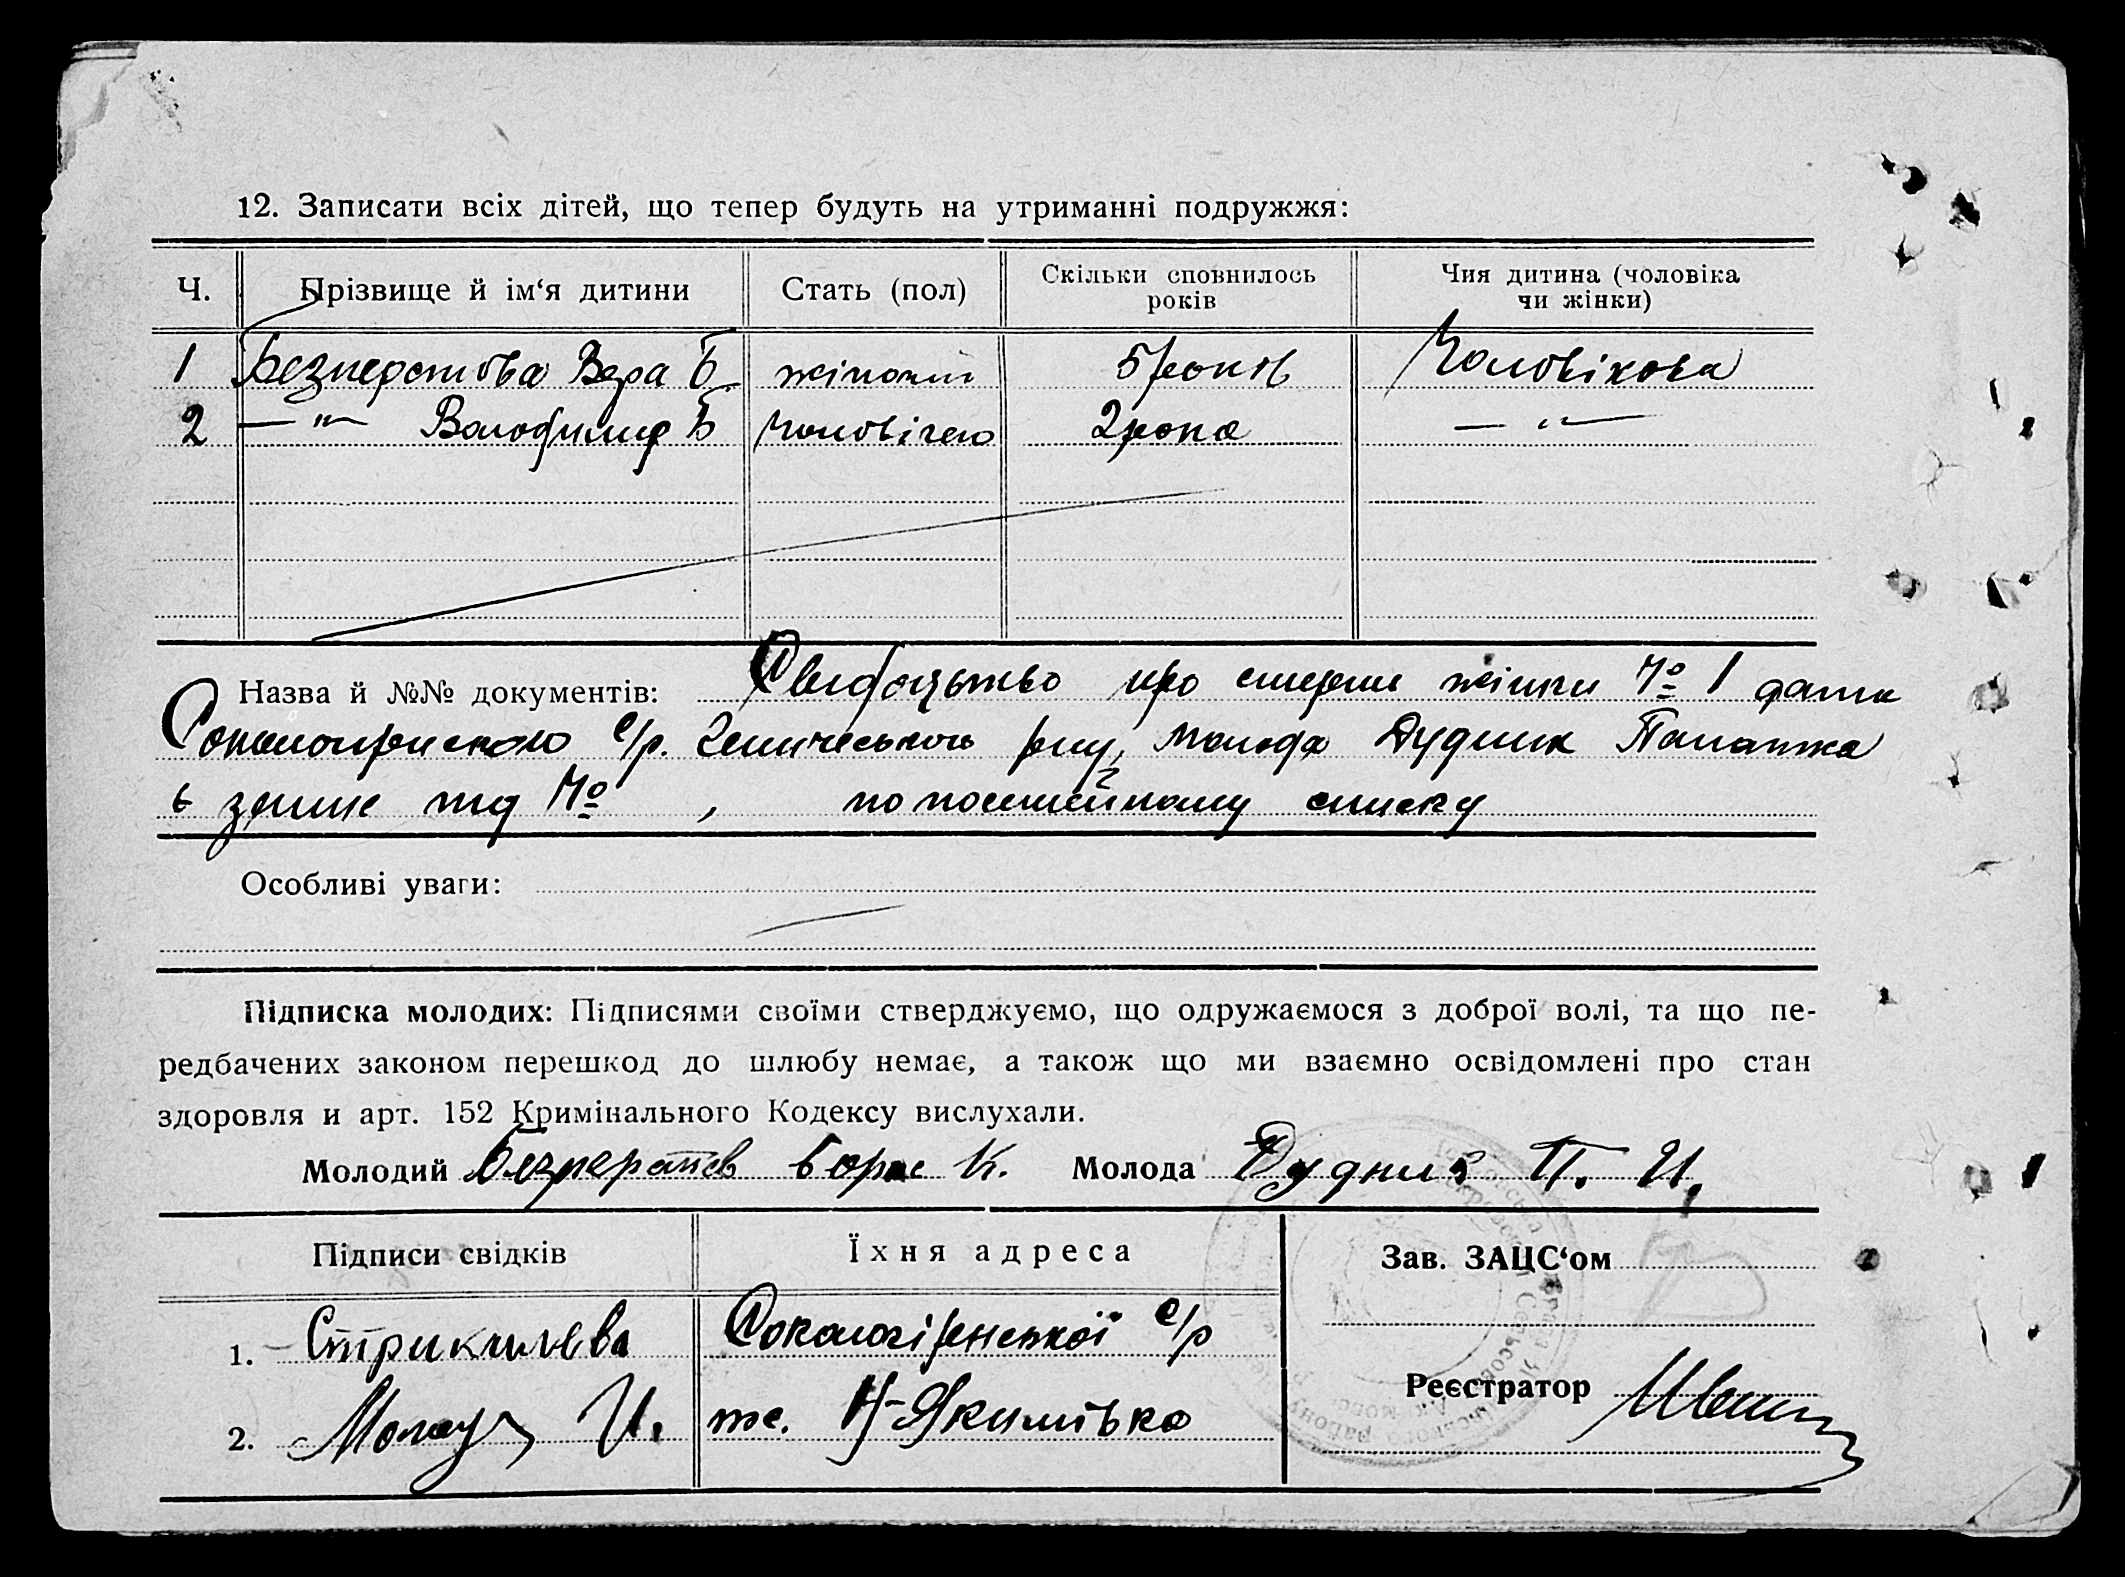 12. Записати всіх дітей, що тепер будуть на утриманні подружжя:
Ч. Прізвище й ім‘я дитини Стать (пол) Скільки сповнилось років Чия дитина (чоловіка чи жінки)
1 Безперстова Вера Б. 5 років Чоловікова
2 — " — Володимир Б 2 рока — " —
Назва й №№ документів: Свидоцьтво про смерти жінки № 1 дата
с/р. молода Дудник Палажка
№ , по посімейному списку
Особливі уваги:
Підписка молодих: Підписями своїми стверджуємо, що одружаємося з доброї волі, та що пе-
редбачених законом перешкод до шлюбу немає, а також що ми взаємно освідомлені про стан
здоровля и арт. 152 Кримінального Кодексу вислухали.
Молодий Борис К. Молода Дудник П. И.
Підписи свідків Їхня адреса Зав. ЗАЦС‘ом
1. Сокологірнської с/р
Реєстратор
2. И. Н-Якимівка